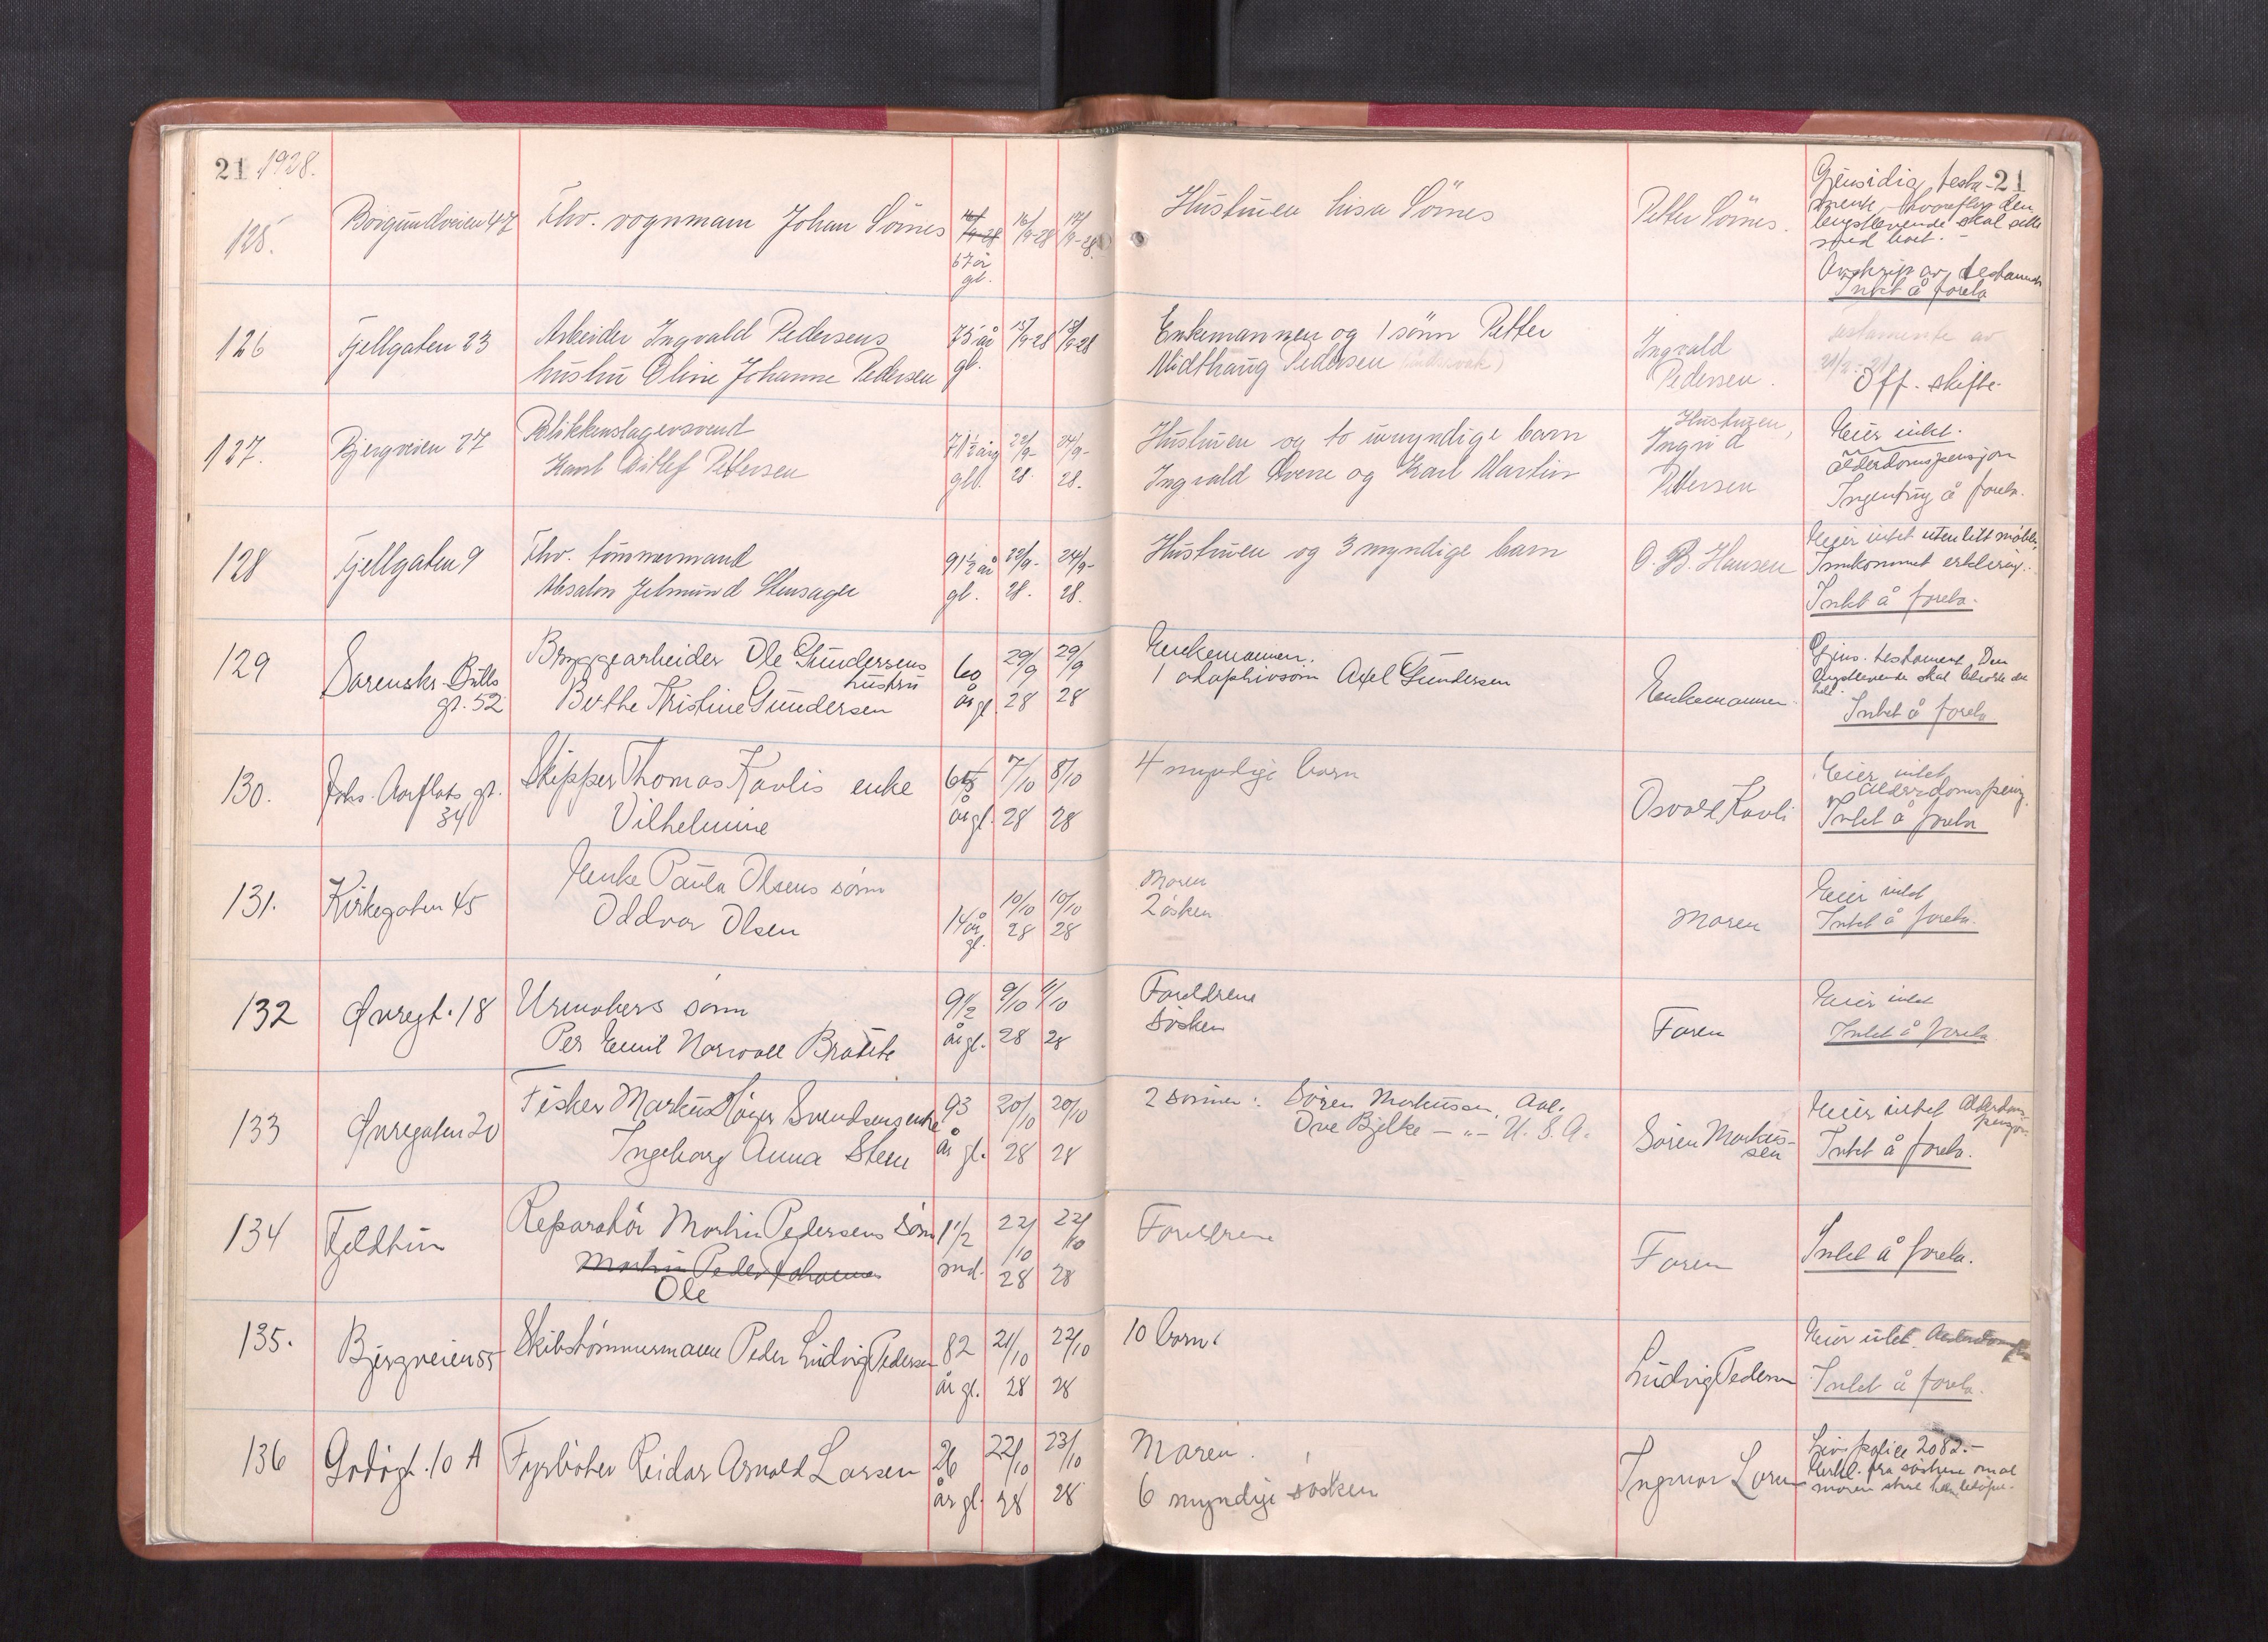 21 1928.
21
125.
Borgundveien 47
Fhv. vognmann Johan Sørnes
67 år
gl.
16/9-28
17/9-28
Hustruen Lisa Sörnes
Petter Sörnes.
Gjensidig testa-
mente, hvorefter den
lengstlevende skal sitte
med boet.-
Avskrift av testamente
Intet å foreta
126
Fjellgaten 23
Arbeider Ingvald Pedersens
hustru Oline Johanne Pedersen
75 år
gl.
18/9-28
Enkemannen og 1 sönn Petter
Midthaug Pedersen
Ingvald
Pedersen.
testamente av
21/2-21
Off. skifte
127.
Bjergveien 27
Blikkenslagersvend
Karl Ditlef Pettersen
71½ årig
gl.
22/9-
28.
24/9-
28.
Hustruen og to umyndige barn
Ingvald Sverre og Karl Martin
Hustruen,
Ingrid
Pettersen
Eier intet.
alderdomspensjon
Ingenting å foreta.
128
Fjellgaten 9
Fhv. tömmermand
Absalon Jetmund Stensager
91½ år
gl.
22/9-
28.
24/9-
28.
Hustruen og 3 myndige barn
O. B. Hansen
Eier intet uten litt möbler
Innkommet erklering.
Intet å foreta.
129
Sorenskr. Bulls
gt. 52
Bryggearbeider Ole Gundersens
hustru
Berthe Kristine Gundersen
60
år gl
29/9
28
29/9
28
Enkemannen.
1 adoptivsönn Axel Gundersen
Enkemannen.
Gjens. testament. Den
lengstlevende skal beholde det
hele.
Intet å foreta
130.
Johs. Aarflots gt.
34
Skipper Thomas Kavlis enke
Vilhelmine
år gl.
7/10
28
8/10
28
4 myndige barn
Osvald Kavli
Eier intet
Alderdomspensj.
Intet å foreta
131.
Kirkegaten 45
Enke Paula Olsens sönn
Oddvar Olsen
14 år
gl.
10/10
28
10/10
28
Moren
2 sösken
Moren
Eier intet
Intet å foreta.
132
Övregt. 18
Urmakers sönn
Per Emil Norvall Brattte
9½
år gl.
9/10
28
9/10
28
Foreldrene
Sösken
Faren
Eier intet
Intet å foreta
133
Övregaten 20
Fisker Markus Höyer Svendsens enke
Ingeborg Anna Steen
93
år gl.
20/10
28
20/10
28
2 sönner: Sören Markussen, Aal.
Ove Bjelke - " - U. S. A.
Sören Markus-
sen
Eier intet Alderdoms-
pensjon
Intet å foreta.
134
Fjeldtun
Reparatör Martin Pedersens sönn
Martin Peder Johannes
Ole
1½
md.
22/10
28
22/10
28
Foreldrene
Faren
Intet å foreta.
135.
Bjergveien 55
Skibstömmermann Peder Ludvig Pedersen
82
år gl.
21/10
28
22/10
28
10 barn.
Ludvig Pedersen
Eier intet.
Intet å foreta.
136
Godögt. 10 A
Fyrböter Reidar Arnold Larsen
26
år gl.
22/10
28
23/10
28
Moren.
6 myndige sösken
Ingvar Larsen
Livspolice 2082.-
Erkl. fra söskene om at
moren skal ha belöpet.